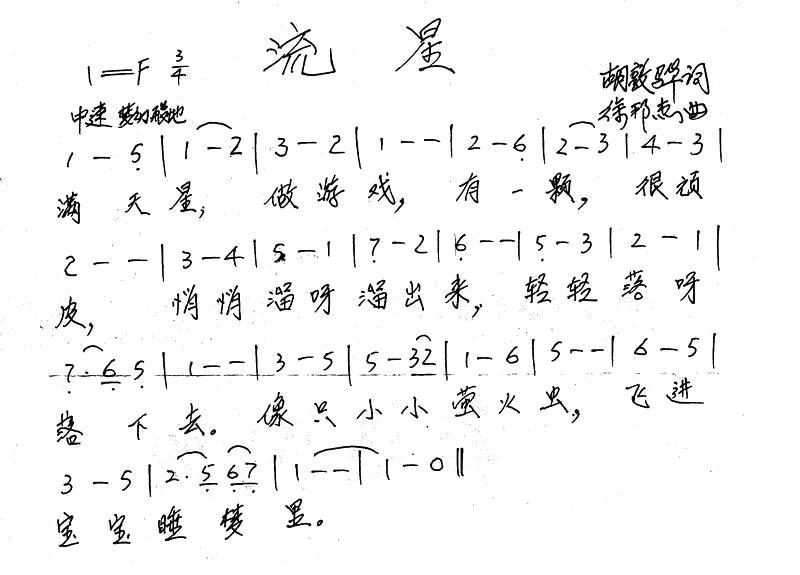 流星
1=F 3/4
胡敦骅词
中速 梦幻般地
徐邦杰曲
1 - 5̣ | 1 - 2 | 3 - 2 | 1 - - | 2 - 6̣ | 2 - 3 | 4 - 3 |
满天星,做游戏,有一颗,很顽
2 - - | 3 - 4 | 5 - 1 | 7̣ - 2 | 6̣ - - | 5̣ - 3 | 2 - 1 |
皮,悄悄溜呀溜出来,轻轻落呀
7̣· 6̣ 5̣ | 1 - - | 3 - 5 | 5 - 32 | 1 - 6 | 5 - - | 6 - 5 |
落下去。像只小小萤火虫,飞进
3 - 5 | 2· 5̣ 6̣7̣ | 1 - - | 1 - 0 ‖
宝宝睡梦里。